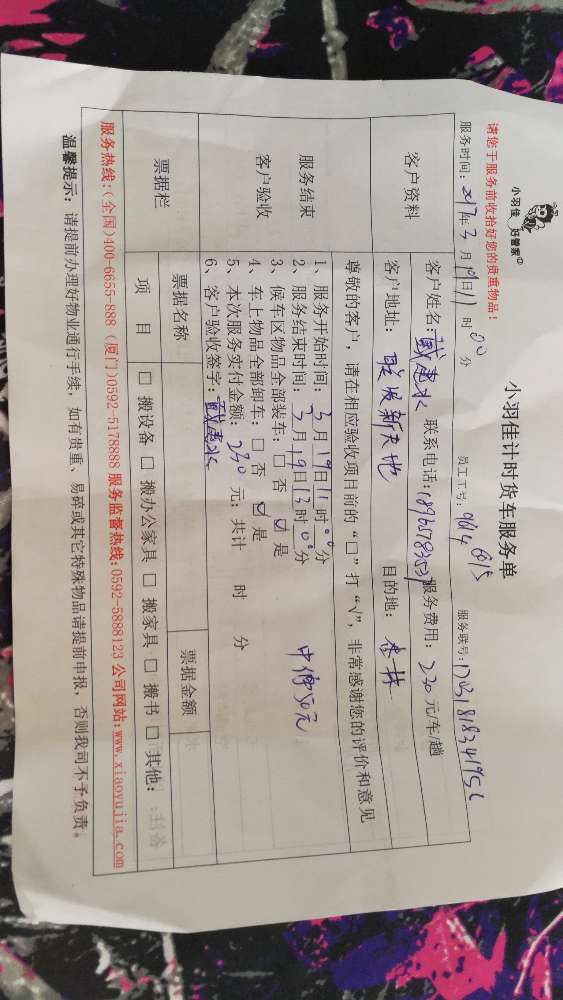 小羽佳 好管家
小羽佳计时货车服务单
请您于服务前收拾好您的贵重物品！
员工工号：964 6815
服务时间：2017年3月19日11时00分
客户资料
客户姓名： 惠水 联系电话： 服务费用：230元/车/趟
客户地址：联发新天地 目的地：杏林
尊敬的客户，请在相应验收项目前的“□”打“√”，非常感谢您的评价和意见
服务结束
客户验收
1、服务开始时间：3月19日11时00分
2、服务结束时间：3月19日13时00分
3、候车区物品全部装车：□ 否 ☑ 是
4、车上物品全部卸车：□ 否 ☑ 是
5、本次服务实付金额：230 元；共计 时 分
6、客户验收签字： 惠水
票据栏
票据名称 票据金额
项 目 □ 搬设备 □ 搬办公家具 □ 搬家具 □ 搬书 □ 其他：
服务热线：(全国)400-6655-888 (厦门)0592-5178888 服务监督热线：0592-5888123 公司网站：www.xiaoyujia.com
温馨提示：请提前办理好物业通行手续，如有贵重、易碎或其它特殊物品请提前申报，否则我司不予负责。